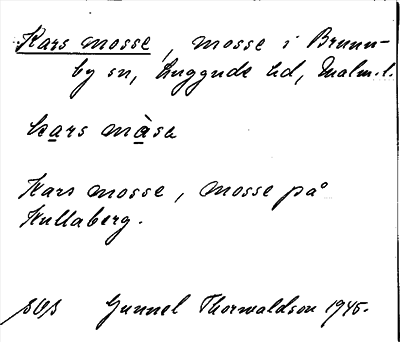 Kars mosse, mosse i Brunn-
by sn, Luggude hd, Malm.l.
kars måsa
Kars mosse, mosse på
Kullaberg.
SOS Gunnel Thorwaldson 1945.